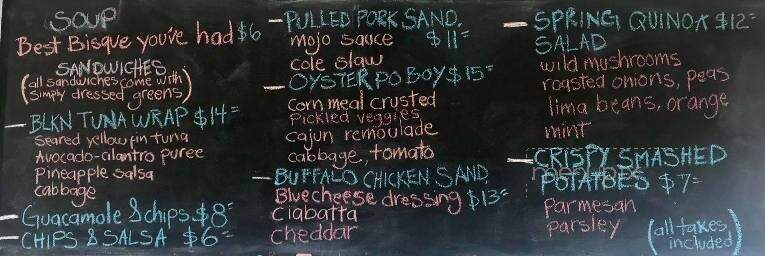 SOUP
Best Bisque you've had $6
SANDWICHES
(all sandwiches come with
simply dressed greens)
- BLKN TUNA WRAP $14=
Seared yellowfin tuna
Avocado-cilantro puree
Pineapple salsa
cabbage
- Guacamole & chips $8=
- CHIPS & SALSA $6=
- PULLED PORK SAND.
mojo sauce $11=
cole slaw
- OYSTER PO BOY $15=
Corn meal crusted
Pickled veggies
cajun remoulade
cabbage, tomato
- BUFFALO CHICKEN SAND.
Bluecheese dressing $13=
Ciabatta
cheddar
- SPRING QUINOA $12=
SALAD
wild mushrooms
roasted onions, peas
lima beans, orange
mint
- CRISPY SMASHED
POTATOES $7=
Parmesan
parsley
(all taxes
included)